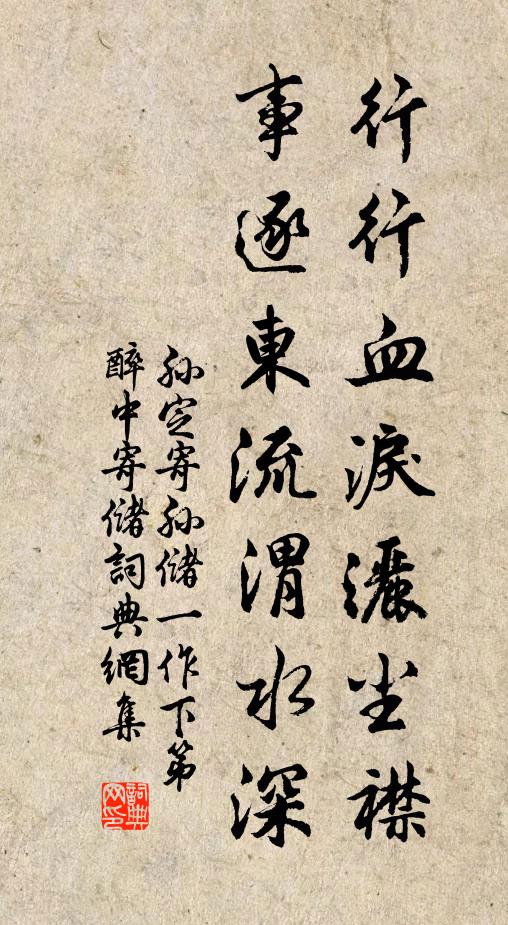 行行血淚灑尘襟
事逐東流渭水深
孙定寄孙儲一作下第
醉中寄儲詞典網集
詞典
网印